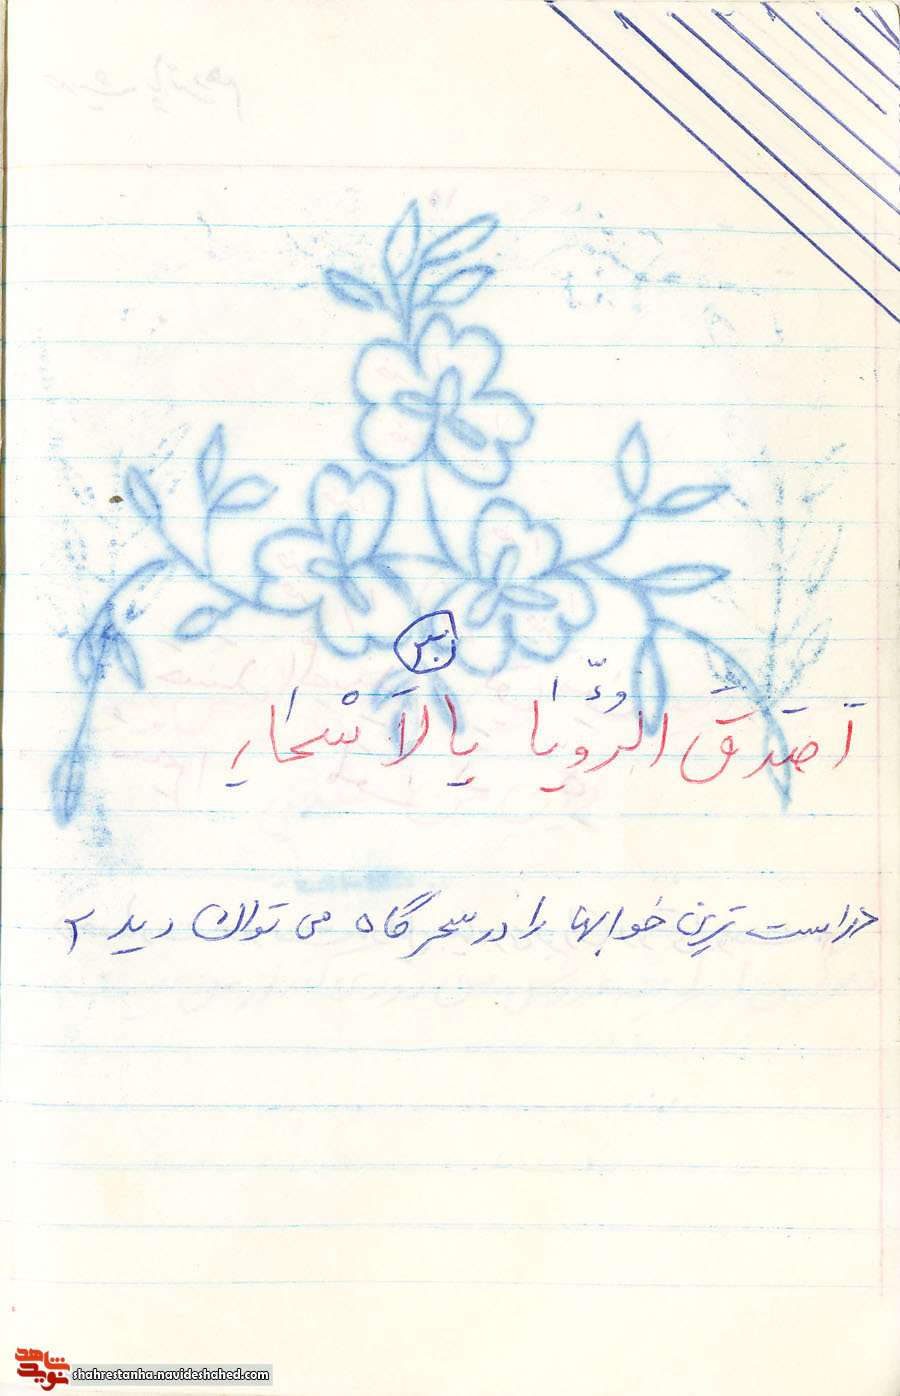 اَصدَقَ الرّؤیا بِالاَسْحارِ
«راست ترین خوابها را در سحرگاه می توان دید»
نوید شاهد
shahrestanha.navideshahed.com